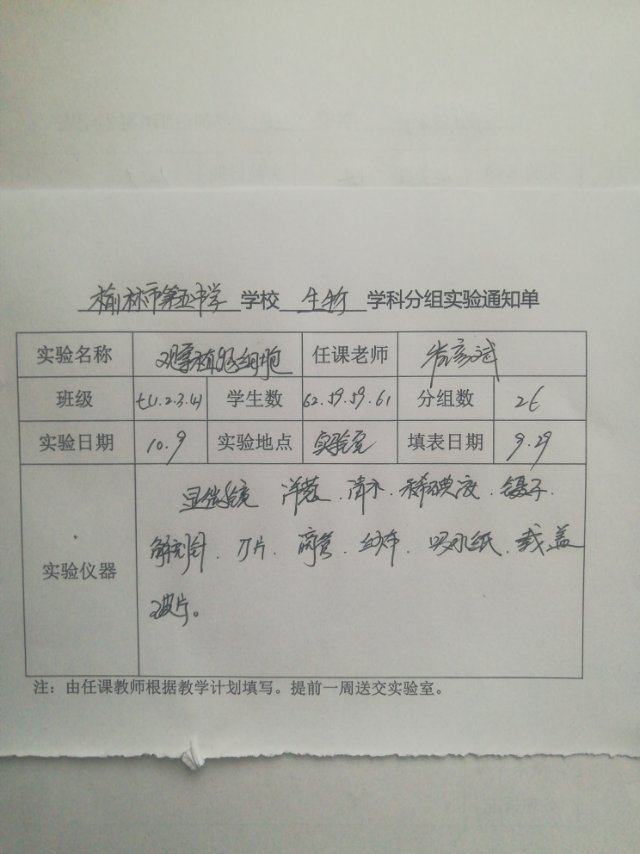 榆林市第五中学 学校 生物 学科分组实验通知单
实验名称 观察植物细胞 任课老师 彦斌
班级 七(1.2.3.4) 学生数 62.59.59.61 分组数 26
实验日期 10.9 实验地点 实验室 填表日期 9.29
实验仪器
显微镜 洋葱.清水.稀碘液.镊子.
解剖针.刀片.滴管.纱布.吸水纸.载盖
玻片。
注：由任课教师根据教学计划填写。提前一周送交实验室。